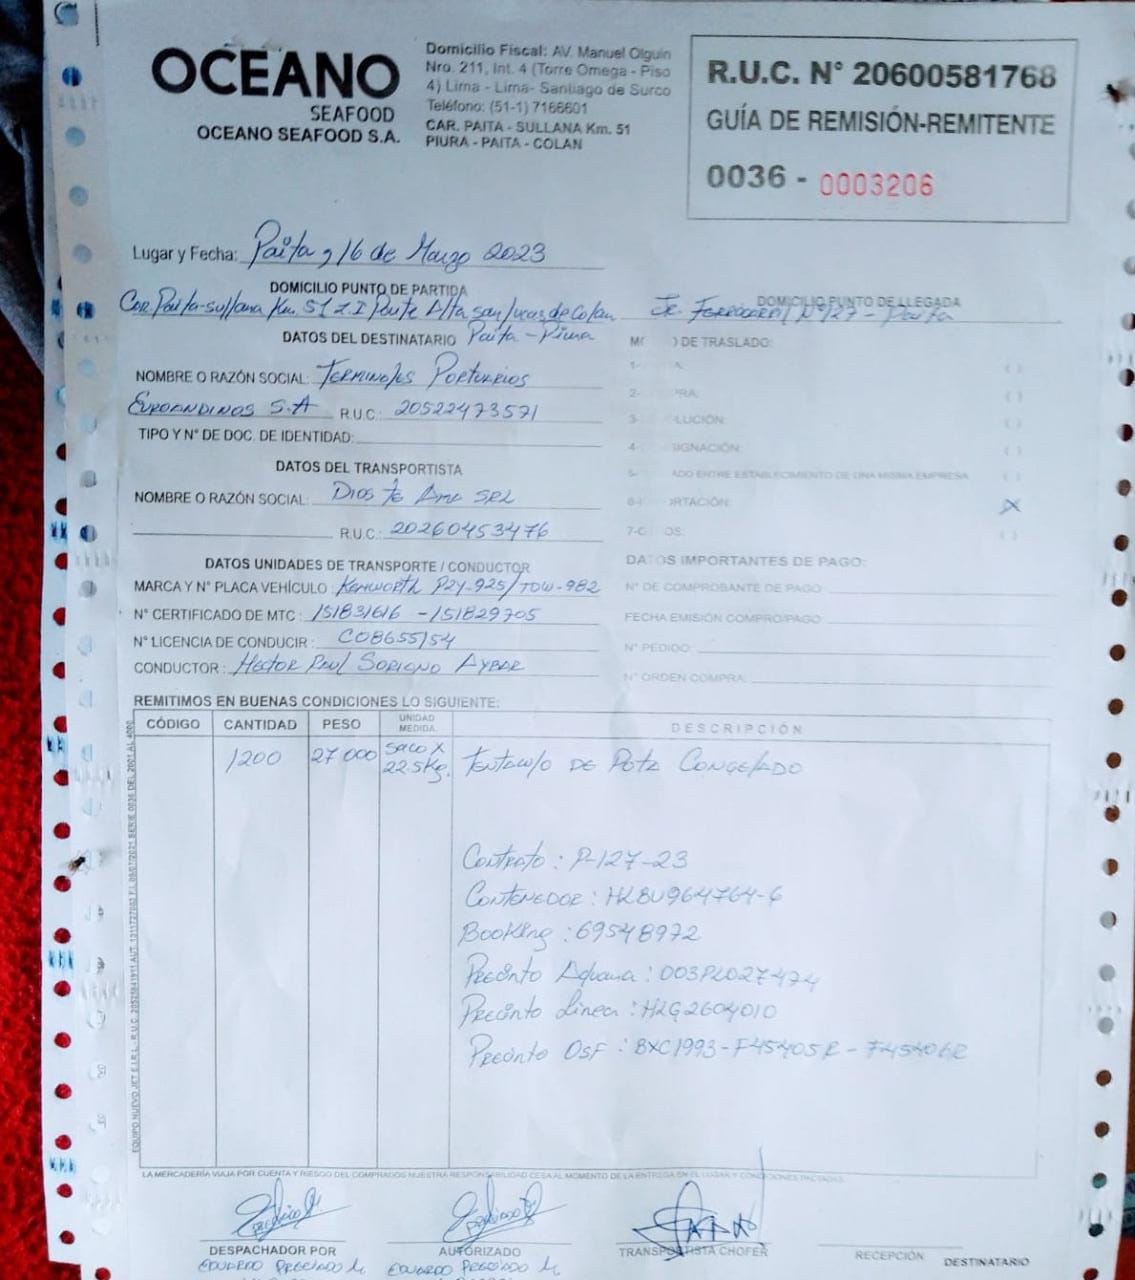 OCEANO
SEAFOOD
OCEANO SEAFOOD S.A.
Domicilio Fiscal: AV. Manuel Olguin
Nro. 211, Int. 4 (Torre Omega - Piso
4) Lima - Lima- Santiago de Surco
Teléfono: (51-1) 7166601
CAR. PAITA - SULLANA Km. 51
PIURA - PAITA - COLAN
R.U.C. N° 20600581768
GUÍA DE REMISIÓN-REMITENTE
0036 - 0003206
Lugar y Fecha: Paita, 16 de Marzo 2023
DOMICILIO PUNTO DE PARTIDA
Car. Paita-sullana Km. 51 Z.I Parte Alta san lucas de Colan
Paita - Piura
DOMICILIO PUNTO DE LLEGADA
Jr. Ferrocarril N°127 - Paita
DATOS DEL DESTINATARIO
NOMBRE O RAZÓN SOCIAL: Terminales Portuarios
Euroandinos S.A R.U.C.: 20522473571
TIPO Y N° DE DOC. DE IDENTIDAD:
DATOS DEL TRANSPORTISTA
NOMBRE O RAZÓN SOCIAL: Dios te Ama SRL
R.U.C.: 20260453476
DATOS UNIDADES DE TRANSPORTE / CONDUCTOR
MARCA Y N° PLACA VEHÍCULO: Kenworth P2Y-925/TDW-982
N° CERTIFICADO DE MTC: 151831616 - 151829705
N° LICENCIA DE CONDUCIR: C08655154
CONDUCTOR: Hector Raul Soriano Aybar
DE TRASLADO:
1-
2- PRA:
3- LUCIÓN:
4- SIGNACIÓN:
5- ADO ENTRE ESTABLECIMIENTO DE UNA MISMA EMPRESA
6- ORTACIÓN: X
7-O OS:
DATOS IMPORTANTES DE PAGO:
N° DE COMPROBANTE DE PAGO
FECHA EMISIÓN COMPRO/PAGO
N° PEDIDO:
N° ORDEN COMPRA:
REMITIMOS EN BUENAS CONDICIONES LO SIGUIENTE:
CÓDIGO CANTIDAD PESO UNIDAD MEDIDA. DESCRIPCIÓN
1200 27 000 saco x 22.5Kg. Tentaculo de Pota Congelado
Contrato: P-127-23
Contenedor: HLBU964764-6
Booking: 69548972
Precinto Aduana: 003PL027474
Precinto Linea: HLG2604010
Precinto Osf: BXC1993-F45405R - F45406R
LA MERCADERÍA VIAJA POR CUENTA Y RIESGO DEL COMPRADOS NUESTRA RESPONSABILIDAD CESA AL MOMENTO DE LA ENTREGA EN EL LUGAR Y CONDICIONES PACTADAS.
DESPACHADOR POR
Eduardo Preciado M.
AUTORIZADO
Eduardo Preciado M.
TRANSPORTISTA CHOFER
RECEPCIÓN DESTINATARIO